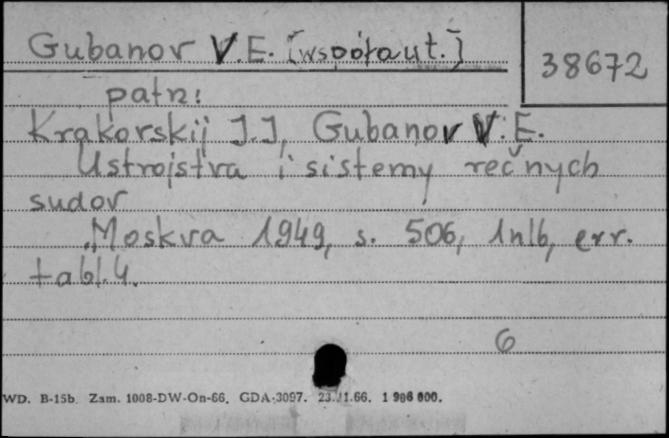 Gubanov V.E. [współaut.]
38672
patrz:
Krakovskij I.I, Gubanov V.E.
Ustrojstva i sistemy rečnych
sudov
Moskva 1949, s. 506, 1nlb, err.
tabl.4.
6
WD. B-15b. Zam. 1008-DW-On-66. GDA-3097. 23.11.66. 1 906 000.